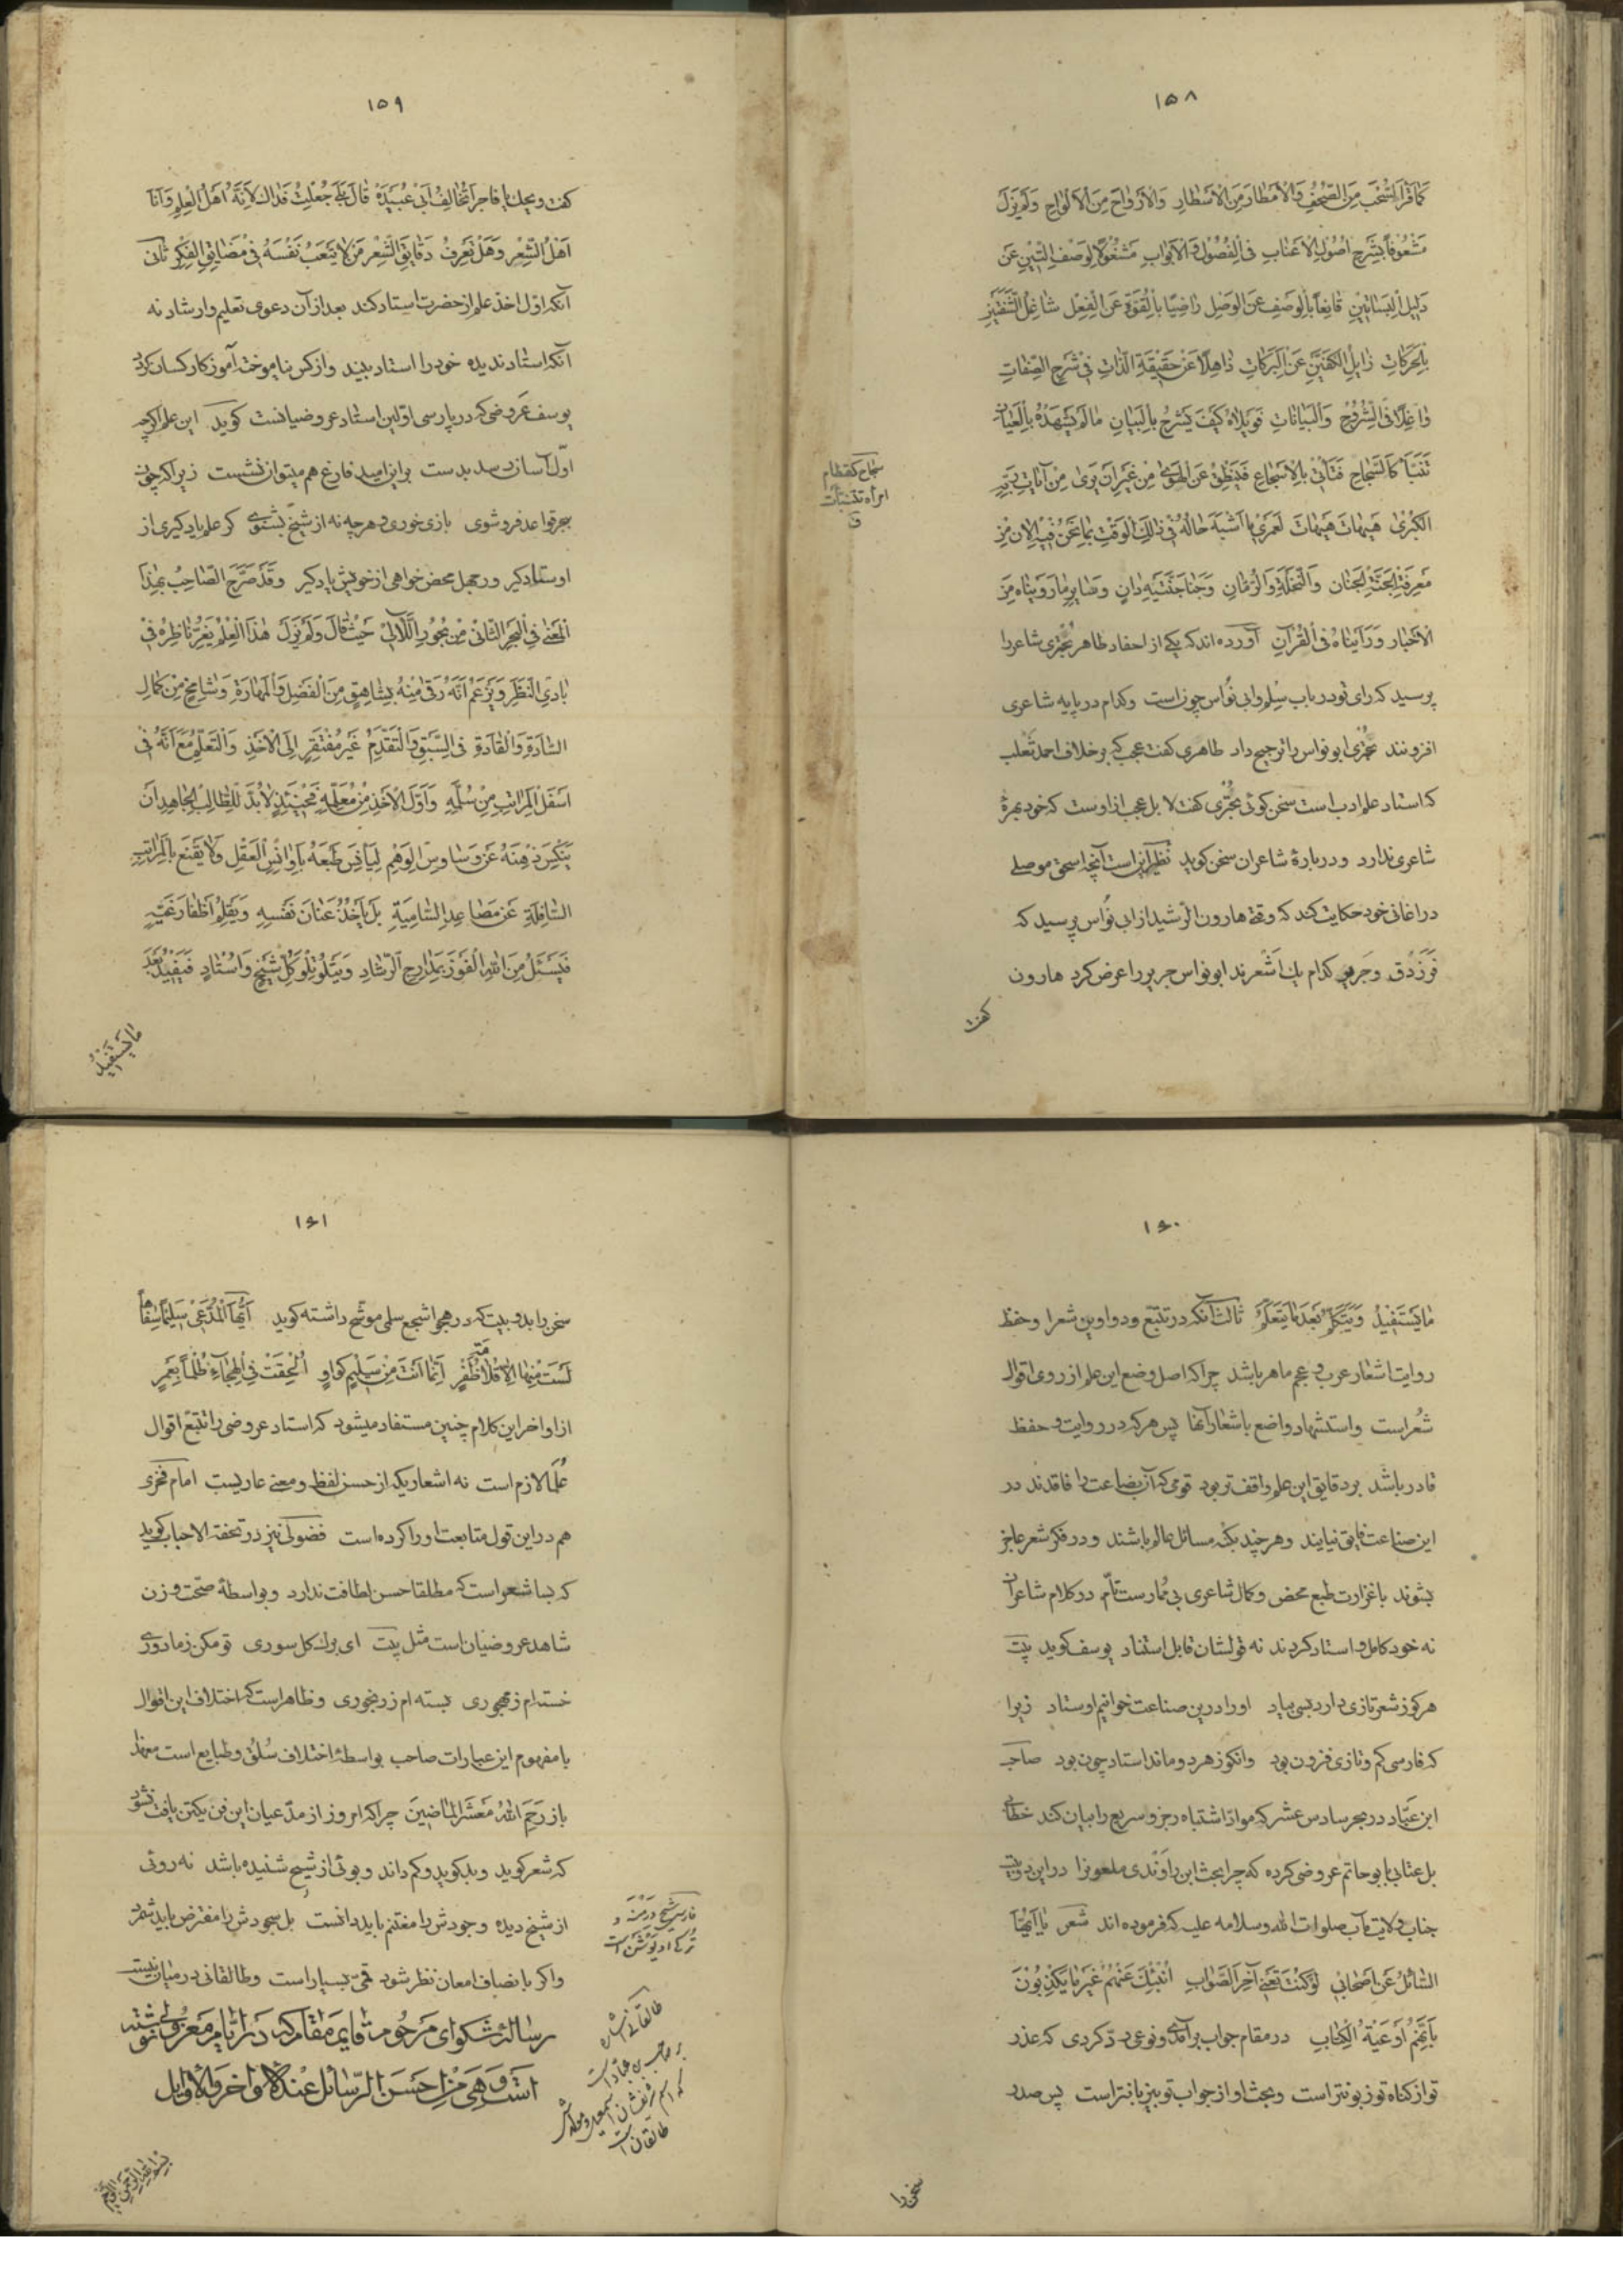 ۱۵۸
كما قرأ السحب من الصحف والأمطار من الأسطار والأرواح من الألواح ولم يزل
مشعوفاً بشرح اصول الاعناب فى الفصول والابواب مشغولاً لوصف التين عن
دليل البساتين قانعاً بالوصف عن الوصل راضيا بالقوة عن الفعل
بالحركات عن البركات ذاهلاً عن حقيقة الذات فى شرح الصفات
فى الشروح والبيانات فويلاه كيف يشرح بالبيان ما لم يشهده بالعيان
تنبأ كالسجاح فتأتى بالاسجاع فينطق عن الهوى من غير ان يرى من آيات ربه
الكبرى هيهات هيهات لعمرى ما اشبه حاله فى ذلك الوقت بما نحن فيه الان من
معرفة الجنة الجنان والنخلة والرمان وجنا جنتيه دان وصاير ما رويناه من
الاخبار ورأيناه فى القرآن آورده اند كه يكى از احفاد طاهر بحترى شاعر را
پرسيد كه راى تو در باب مسلم وابى نواس چون است وكدام در پايه شاعرى
افزونند بحترى ابو نواس را ترجيح داد طاهرى كفت عجب كه بر خلاف احمد ثعلب
كه استاد علم ادب است سخن كوئى بحترى كفت لا بل عجب از اوست كه خود بهرۀ
شاعرى ندارد ودر بارۀ شاعران سخن كويد نظير اين است آنچه اسحق موصلى
در اغانى خود حكايت كند كه وقتى هارون الرشيد از ابى نواس پرسيد كه
فرزدق وجرير كدام يك اشعرند ابو نواس جرير را عرض كرد هارون
كفت
سجاح كقطام
امرأة تنبأت
ق
۱۵۹
كفت ويحك يا فاجر أتخالف ابى عبيدة قال بلى جعلت فداك لانه اهل العلم وانا
اهل الشعر وهل تعرف دقايق الشعر من لا يتعب نفسه فى مضايق الفكر ثانى
آنكه اول اخذ علم از حضرت استاد كند بعد از آن دعوى تعليم وارشاد نه
آنكه استاد نديده خود را استاد بيند واز كس نياموخته آموزكار كسان كردد
يوسف عروضى كه در پارسى اولين استاد عروضيانست كويد اين علم اكرچه
اول آسان رسد بدست بر اين اميد فارغ هم ميتوان نشست زيرا كه چون
بحر قواعد فرو شوى بازى خورى وهر چه نه از شيخ بشنوى كر علم ياد كيرى از
اوستاد كير ور جهل محض خواهى از خويش ياد كير وقد صرح الصاحب بهذا
المعنى فى البحر الثانى من بحور اللآلى حيث قال ولم يزل هذا العلم يغر ناظره فى
بادى النظر ويزعم انه رقى منه بشاهق من الفضل والمهارة وشامخ من كمال
السادة والقادة فى السبق والتقدم غير مفتقر الى الاخذ والتعلم مع انه فى
اسفل المراتب من سلمه واول الاخذ من معلمه فحينئذ لابد للطالب الجاهد ان
ذهنه عن وساوس الوهم ليأنس طبعه باوانس العقل ولا يقنع بالمراتب
السافلة عن مصاعده السامية بل يأخذ عنان نفسه ويقلم اظفار
فيسئل من الله الفوز بمدارج الرشاد ويتلو تلو كل شيخ واستاد فيفيد بعد
ما يستفيد
۱۶۰
ما يستفيد ويتكلم بعد ما يتعلم ثالث آنكه در تتبع دواوين شعرا وحفظ
روايت اشعار عرب وعجم ماهر باشد چرا كه اصل وضع اين علم از روى اقوال
شعر است واستشهاد واضع باشعار آنها پس هر كه در روايت وحفظ
قادر باشد بر دقايق اين علم واقف تر بود قومى كه آن بضاعت را فاقدند در
اين صناعت فايق نيايند وهر چند بكنه مسائل عالم باشند ودر فكر شعر عاجز
نشوند با غزارت طبع محض وكمال شاعرى بى ممارست تام در كلام شاعران
نه خود كامل واستاد كردند نه قولشان قابل استناد يوسف كويد بيت
هر كو ز شعر تازى دارد بسى بياد او را درين صناعت خوانيم اوستاد زيرا
كه فارسى كم وتازى فزون بود وانكو ز هر دو ماند استاد چون بود صاحب
ابن عباد در بحر سادس عشر كه مواد اشتباه رجز وسريع را بيان كند خطابى
بل عتابى با بو حاتم عروضى كرده كه چرا بحث ابن راوندى ملعون را در اين دو بيت
جناب ولايت مآب صلوات الله وسلامه عليه كه فرموده اند شعر يا ايها
السائل عن اصحابى لو كنت تعنى آخر الصواب انبئك عنهم غير ما يكذبون
بانهم اوعية الكتاب در مقام جواب برآمدى ونوعى رد كردى كه عذر
تو از كناه تو زبونتر است وبحث او از جواب تو بيز با نيتر است پس صدر
سخن را
۱۶۱
سخن را بدو بيت كه در هجو اشجع سلمى موشح داشته كويد ايها المدعى سليما سفاها
لست منها الا قلامة ظفر انما انت من سليم كواو الحقت فى الهجاء ظلما بعمرو
از اواخر اين كلام چنين مستفاد ميشود كه استاد عروضى را تتبع اقوال
علما لازم است نه اشعاريكه از حسن لفظ ومعنى عاريست امام فخرى
هم در اين قول متابعت او را كرده است فضولى نيز در تحفة الاحباب كويد
كه بسا شعر است كه مطلقا حسن لطافت ندارد وبواسطۀ صحت وزن
شاهد عروضيان است مثل بيت اى برك كل سورى تو مكن ز ما دورى
خسته ام ز مهجورى بسته ام ز رنجورى وظاهر است كه اختلاف اين اقوال
با مفهوم اين عبارات صاحب بواسطۀ اختلاف سلق وطبايع است معهذا
باز رحم الله معشر الماضين چرا كه امروز از مدعيان اين فن يكتن يافت نشود
كه شعر كويد وبد كويد وكم داند وبوئى از شيخ شنيده باشد نه روئى
از شيخ ديده وجودش را مغتنم بايد دانست بل سجودش را مفترض بايد شمرد
واكر بانصاف امعان نظر شود قمى بسيار است وطالقانى در ميان نيست
رسالۀ شكواى مرحوم قايم مقام كه در ايام معزولى نوشته
است وهى من احسن الرسائل عند الاواخر والاوائل
فارسى شيخ درمنه و
تركى او يوشن است
طالقانى اشاره
به صاحب بن عباد است
كه اسم شريفشان اسمعيل ومولدش
طالقان است
بسم الله الرحمن الرحيم